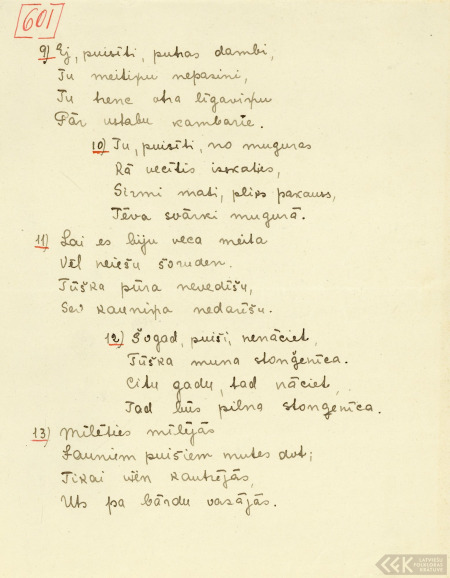 601
9) Ej, puisīti, putras dambi,
Tu meitiņu nepazini,
Tu trenc otra līgaviņu
Pār ustabu kambarīe.
10) Tu, puisīti, no muguras
Kā vecītis izskaties,
Sirmi mati, pliks pakauss,
Tēva svārki mugurā.
11) Lai es biju veca meita
Vēl neiešu šoruden.
Tūška pūra nevedīšu,
Sev kauniņa nedarīšu.
12) Šogad, puiši, nenāciet,
Tūška muna stonģenīca.
Citu gadu, tad nāciet,
Tad būs pilna stonģenīca.
13) Mīlēties mīlējās
Jauniem puišiem mutes dot;
Tikai vien kautrējās,
Uts pa bārdu vazājās.
LATVIEŠU
FOLKLORAS
KRĀTUVE